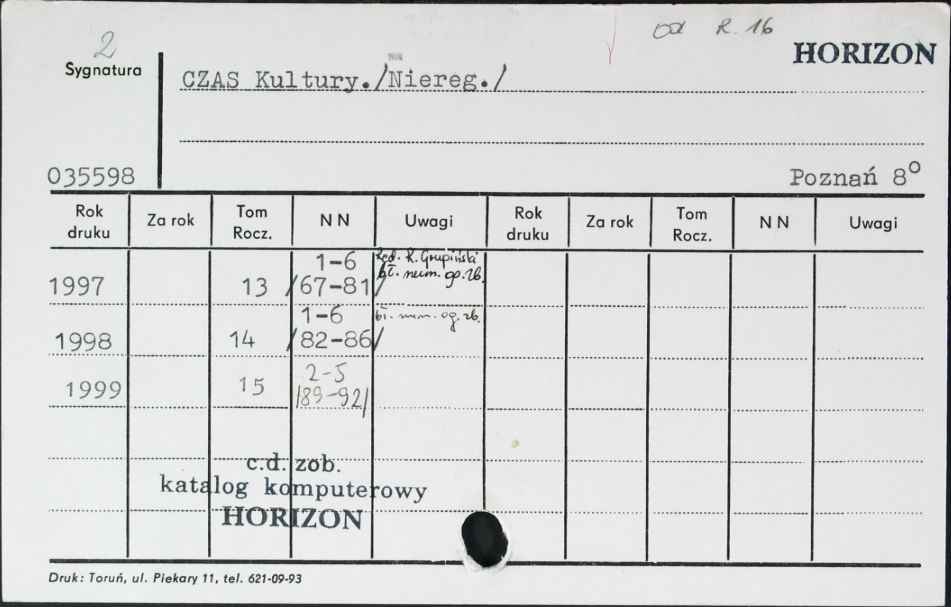 2
od R. 16
HORIZON
Sygnatura
CZAS Kultury./Niereg./
035598
Poznań 8⁰
Rok druku Za rok Tom Rocz. N N Uwagi Rok druku Za rok Tom Rocz. N N Uwagi
1997 13 1-6 /67-81/ Red. R. Grupiński bł. num. og. zb.
1998 14 1-6 /82-86/ bł. num. og. zb.
1999 15 2-5 /89-92/
c.d. zob.
katalog komputerowy
HORIZON
Druk: Toruń, ul. Piekary 11, tel. 621-09-93